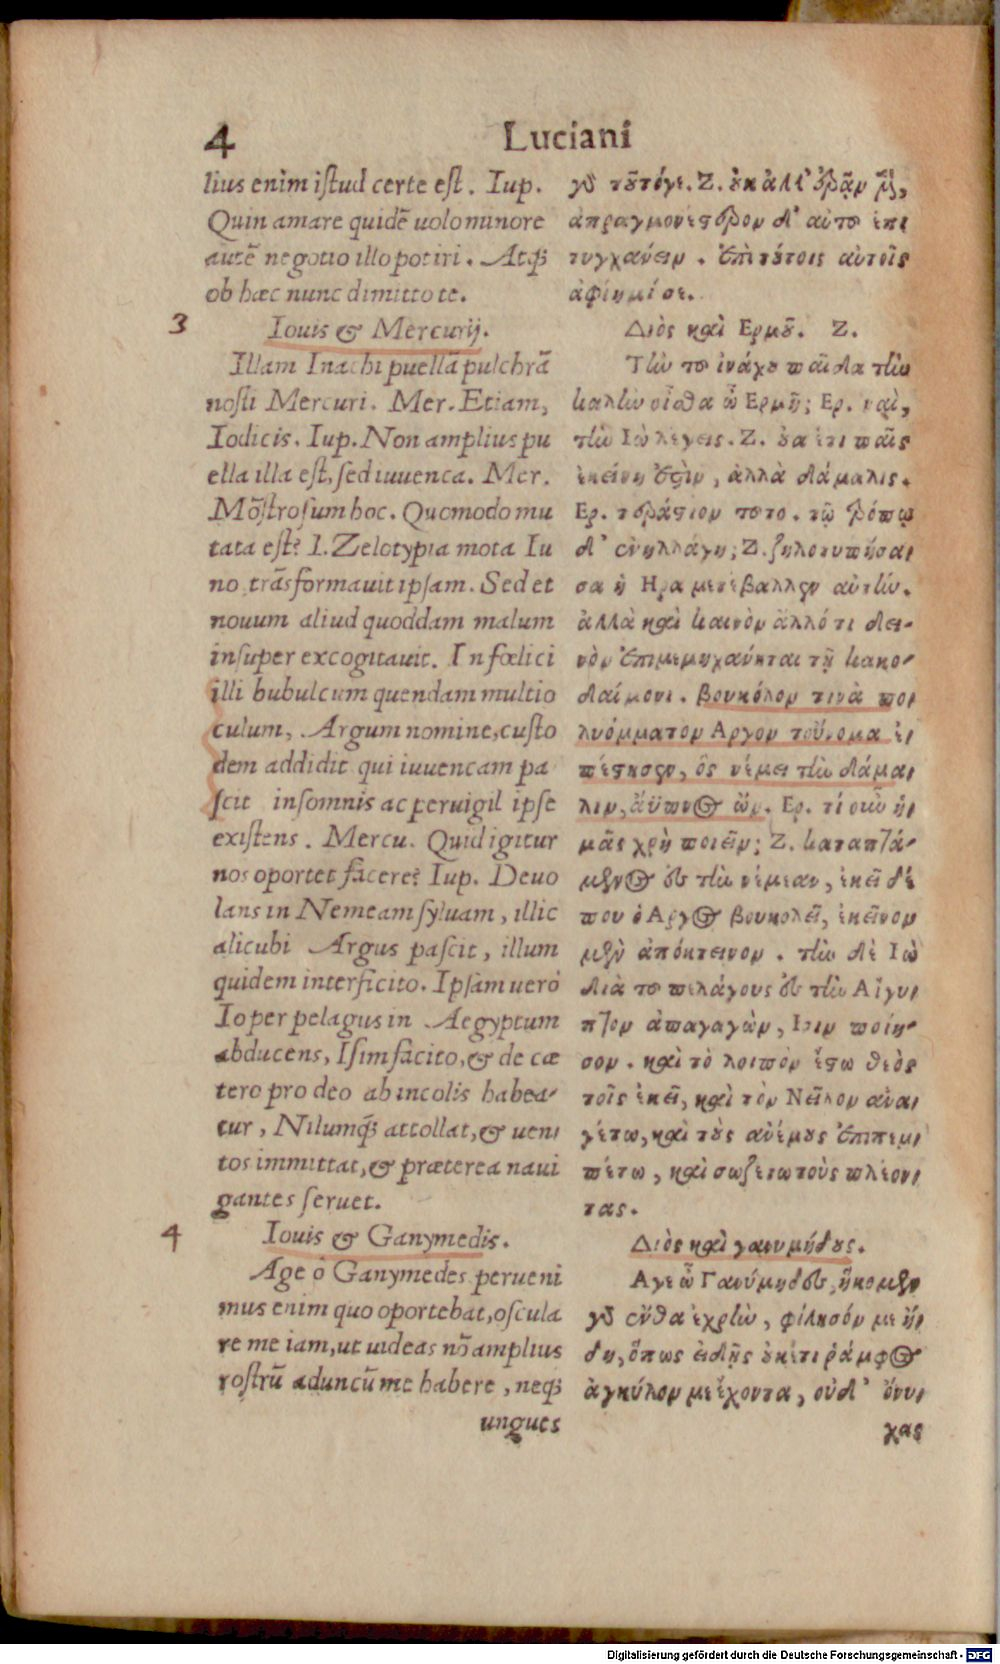 4 Luciani
lius enim istud certe est. Iup.
Quin amare quidē uolo minore
autē negotio illo potiri. Atq́;
ob hæc nunc dimitto te.
3
Iouis & Mercurij.
Illam Inachi puellā pulchrā
nosti Mercuri. Mer. Etiam,
Io dicis. Iup. Non amplius pu
ella illa est, sed iuuenca. Mer.
Mōstrosum hoc. Quomodo mu
tata est? I. Zelotypia mota Iu
no trāsformauit ipsam. Sed et
nouum aliud quoddam malum
insuper excogitauit. Infœlici
illi bubulcum quendam multio
culum, Argum nomine, custo
dem addidit qui iuuencam pa
scit insomnis ac peruigil ipse
existens. Mercu. Quid igitur
nos oportet facere? Iup. Deuo
lans in Nemeam syluam, illic
alicubi Argus pascit, illum
quidem interficito. Ipsam uerò
Io per pelagus in Aegyptum
abducens, Isim facito, & de cæ
tero pro deo ab incolis habea-
tur, Nilumq́; attollat, & uen
tos immittat, & præterea naui
gantes seruet.
4
Iouis & Ganymedis.
Age ô Ganymedes perueni
mus enim quo oportebat, oscula
re me iam, ut uideas nō amplius
rostrū aduncū me habere, neq́;
ungues
γε τοῦτόγε. Ζ. οὐκ ἀλλ' ἐρᾶν μὲν,
ἀπραγμονέστερον δ' αὐτῶ ἐπι
τυγχάνειν. ἐπὶ τούτοις αὐτοῖς
ἀφίημί σε.
Διὸς καὶ Ερμοῦ. Ζ.
Τὴν τοῦ ἰνάχου παῖδα τὴν
καλὴν οἶσθα ὦ Ερμῆ; Ερ. ναὶ,
τὴν Ιὼ λέγεις. Ζ. οὐκ ἔτι παῖς
ἐκείνη ἐστὶν, ἀλλὰ δάμαλις.
Ερ. τεράστιον τοῦτο. τῷ τρόπῳ
δ' ἐνηλλάγη; Ζ. ζηλοτυπήσα
σα ἡ Ηρα μετέβαλλεν αὐτήν.
ἀλλὰ καὶ καινὸν ἄλλό τι δει-
νὸν ἐπιμεμηχάνηται τῇ κακο-
δαίμονι. βουκόλον τινὰ πο
λυόμματον Αργον τοὔνομα ἐ
πέστησεν, ὃς νέμει τὴν δάμα
λιν, ἄϋπνος ὤν. Ερ. τί οὖν ἡ
μᾶς χρὴ ποιεῖν; Ζ. καταπτά-
μενος ἐς τὴν νέμεαν, ἐκεῖ δέ
που ὁ Αργος βουκολεῖ, ἐκεῖνον
μὲν ἀπόκτεινον. τὴν δὲ Ιὼ
διὰ τοῦ πελάγους ἐς τὴν Αἴγυ
πτον ἀπαγαγὼν, Ισιν ποίη-
σον. καὶ τὸ λοιπὸν ἔστω θεὸς
τοῖς ἐκεῖ, καὶ τὸν Νεῖλον ἀνα
γέτω, καὶ τοὺς ἀνέμους ἐπιπεμ
πέτω, καὶ σωζέτω τοὺς πλέον
τας.
Διὸς καὶ γανυμήδους.
Αγε ὦ Γανύμηδες, ἥκομεν
γὰρ ἔνθα ἐχρῆν, φίλησόν με ἤ
δη, ὅπως εἰδῇς οὐκέτι ῥάμφος
ἀγκύλον με ἔχοντα, οὐδ' ὄνυ
χας
Digitalisierung gefördert durch die Deutsche Forschungsgemeinschaft - DFG